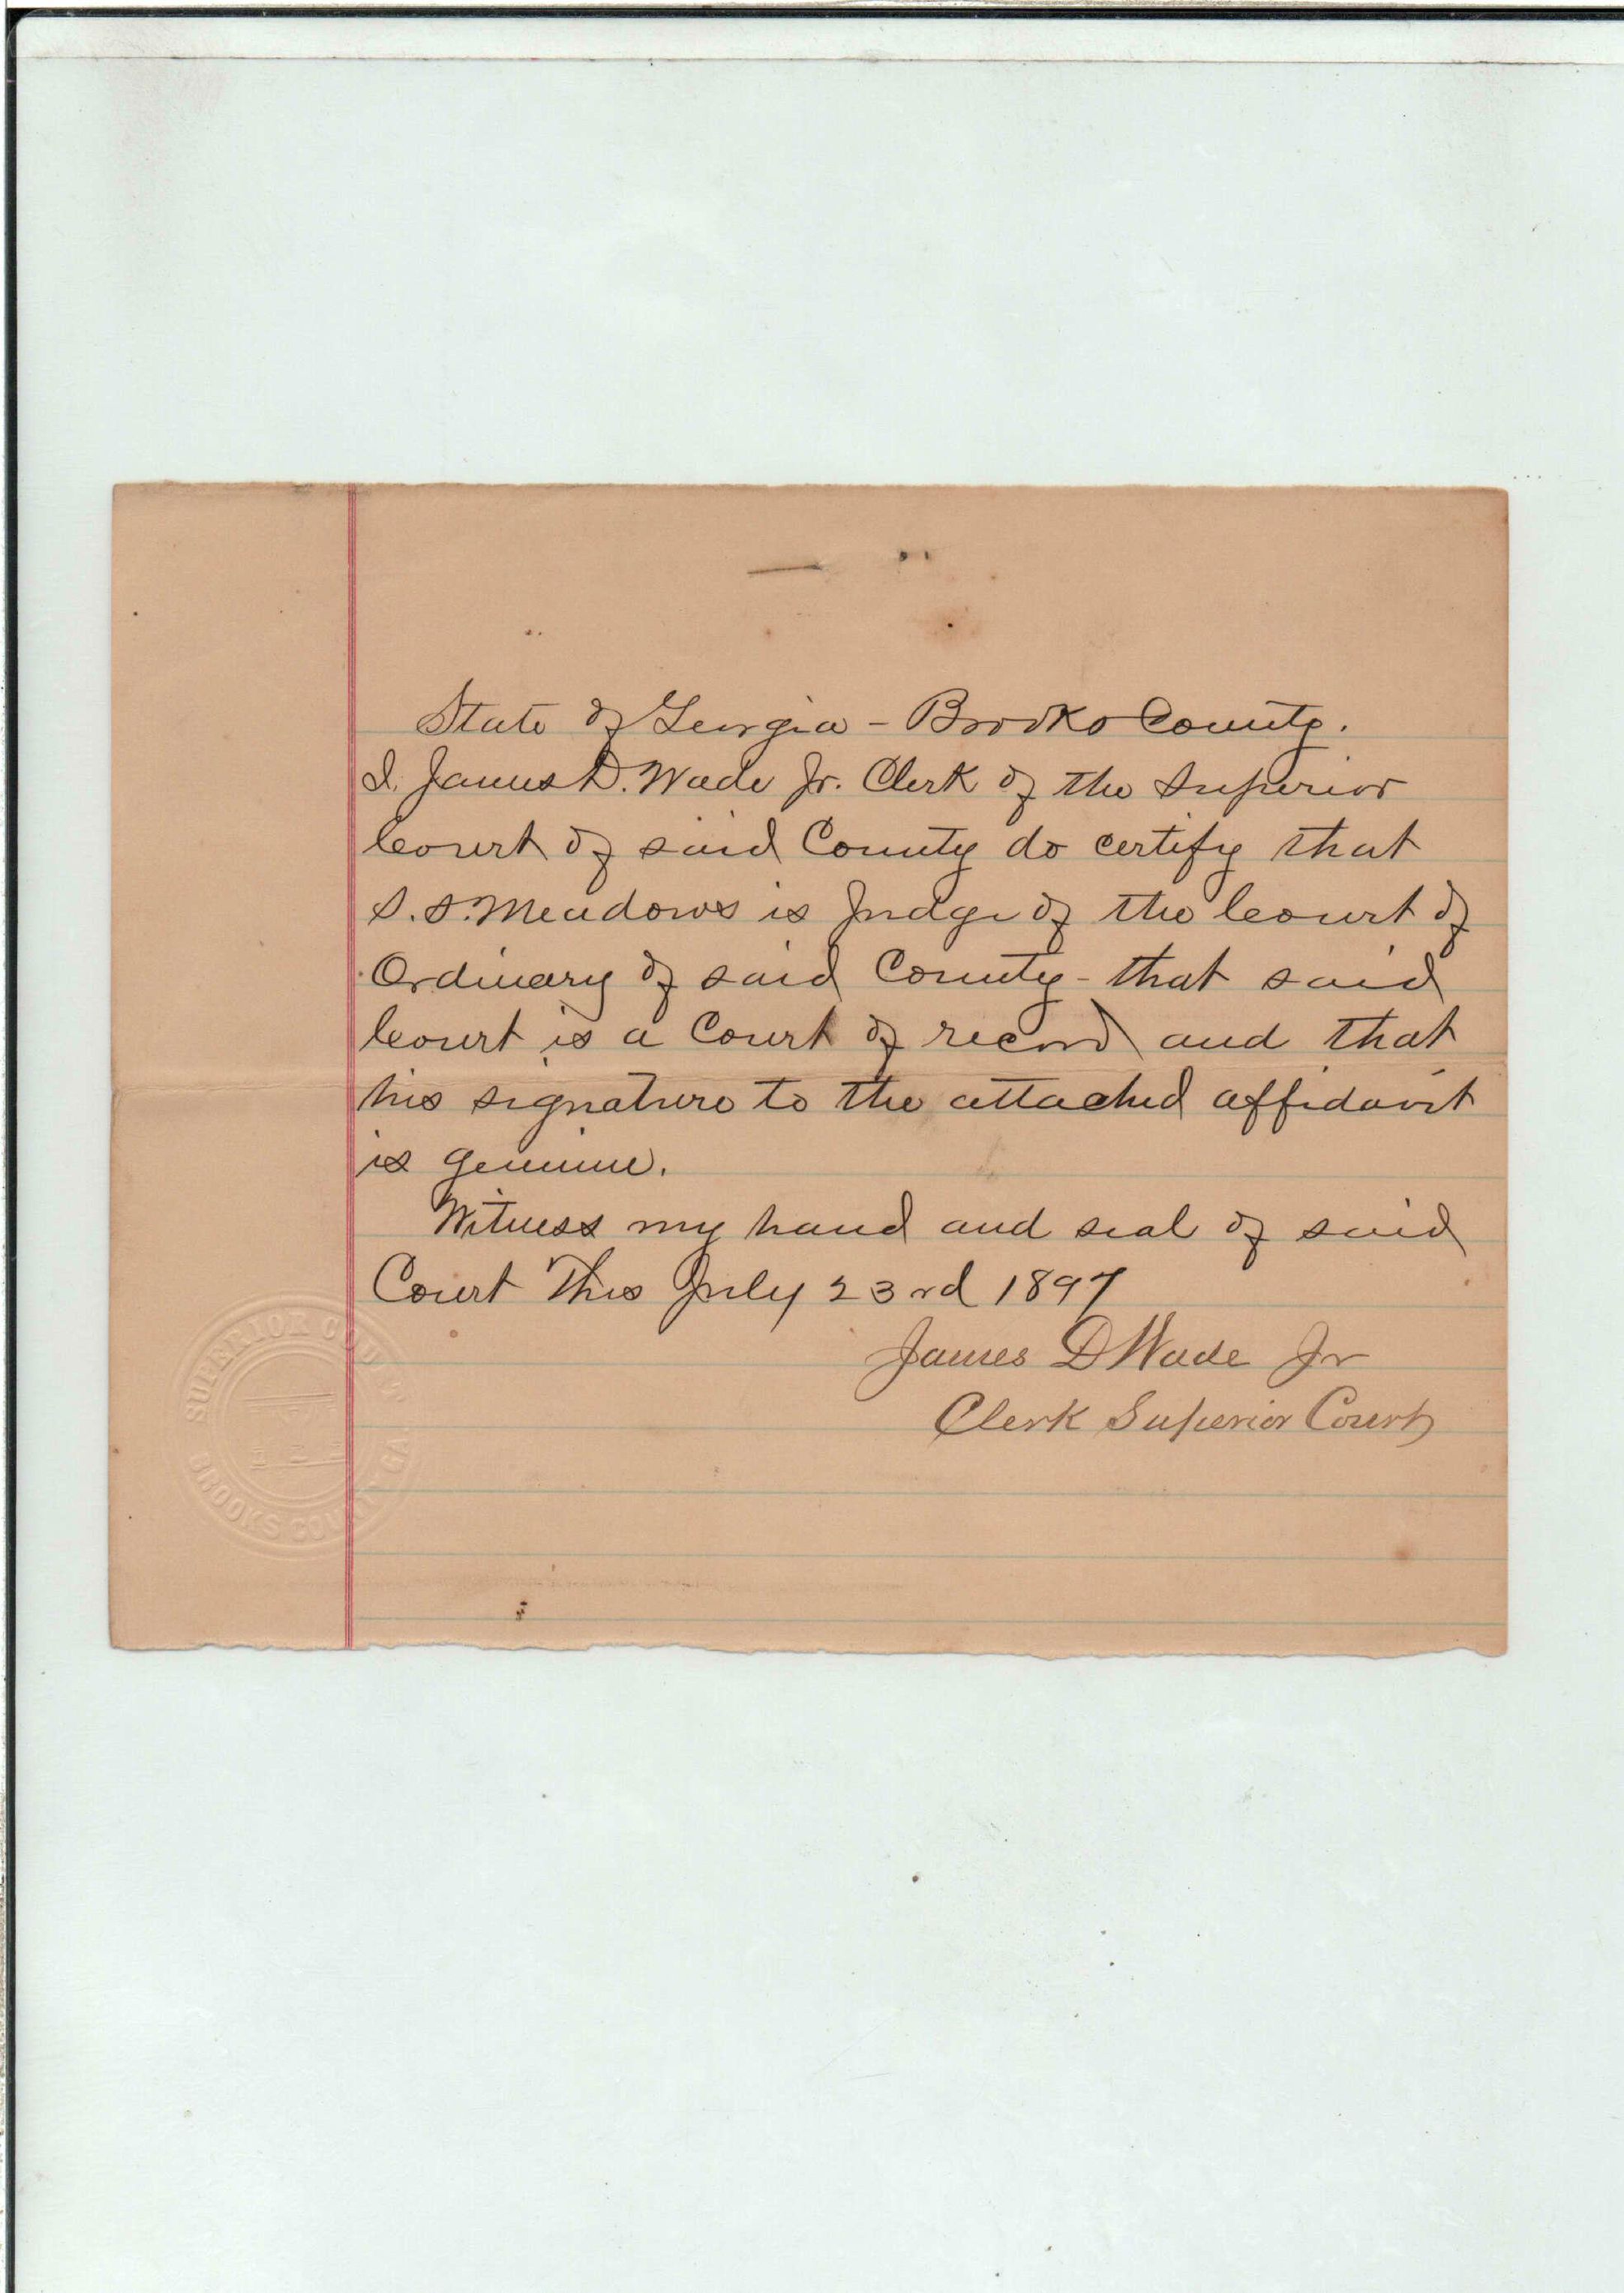 State of Georgia - Brooks County.
I, James D. Wade Jr. Clerk of the Superior
Court of said County do certify that
S. S. Meadows is Judge of the Court of
Ordinary of said County - that said
Court is a Court of record and that
his signature to the attached affidavit
is genuine.
Witness my hand and seal of said
Court This July 23rd 1897
James D Wade Jr
Clerk Superior Court
SUPERIOR COU
BROOKS COUNTY GA